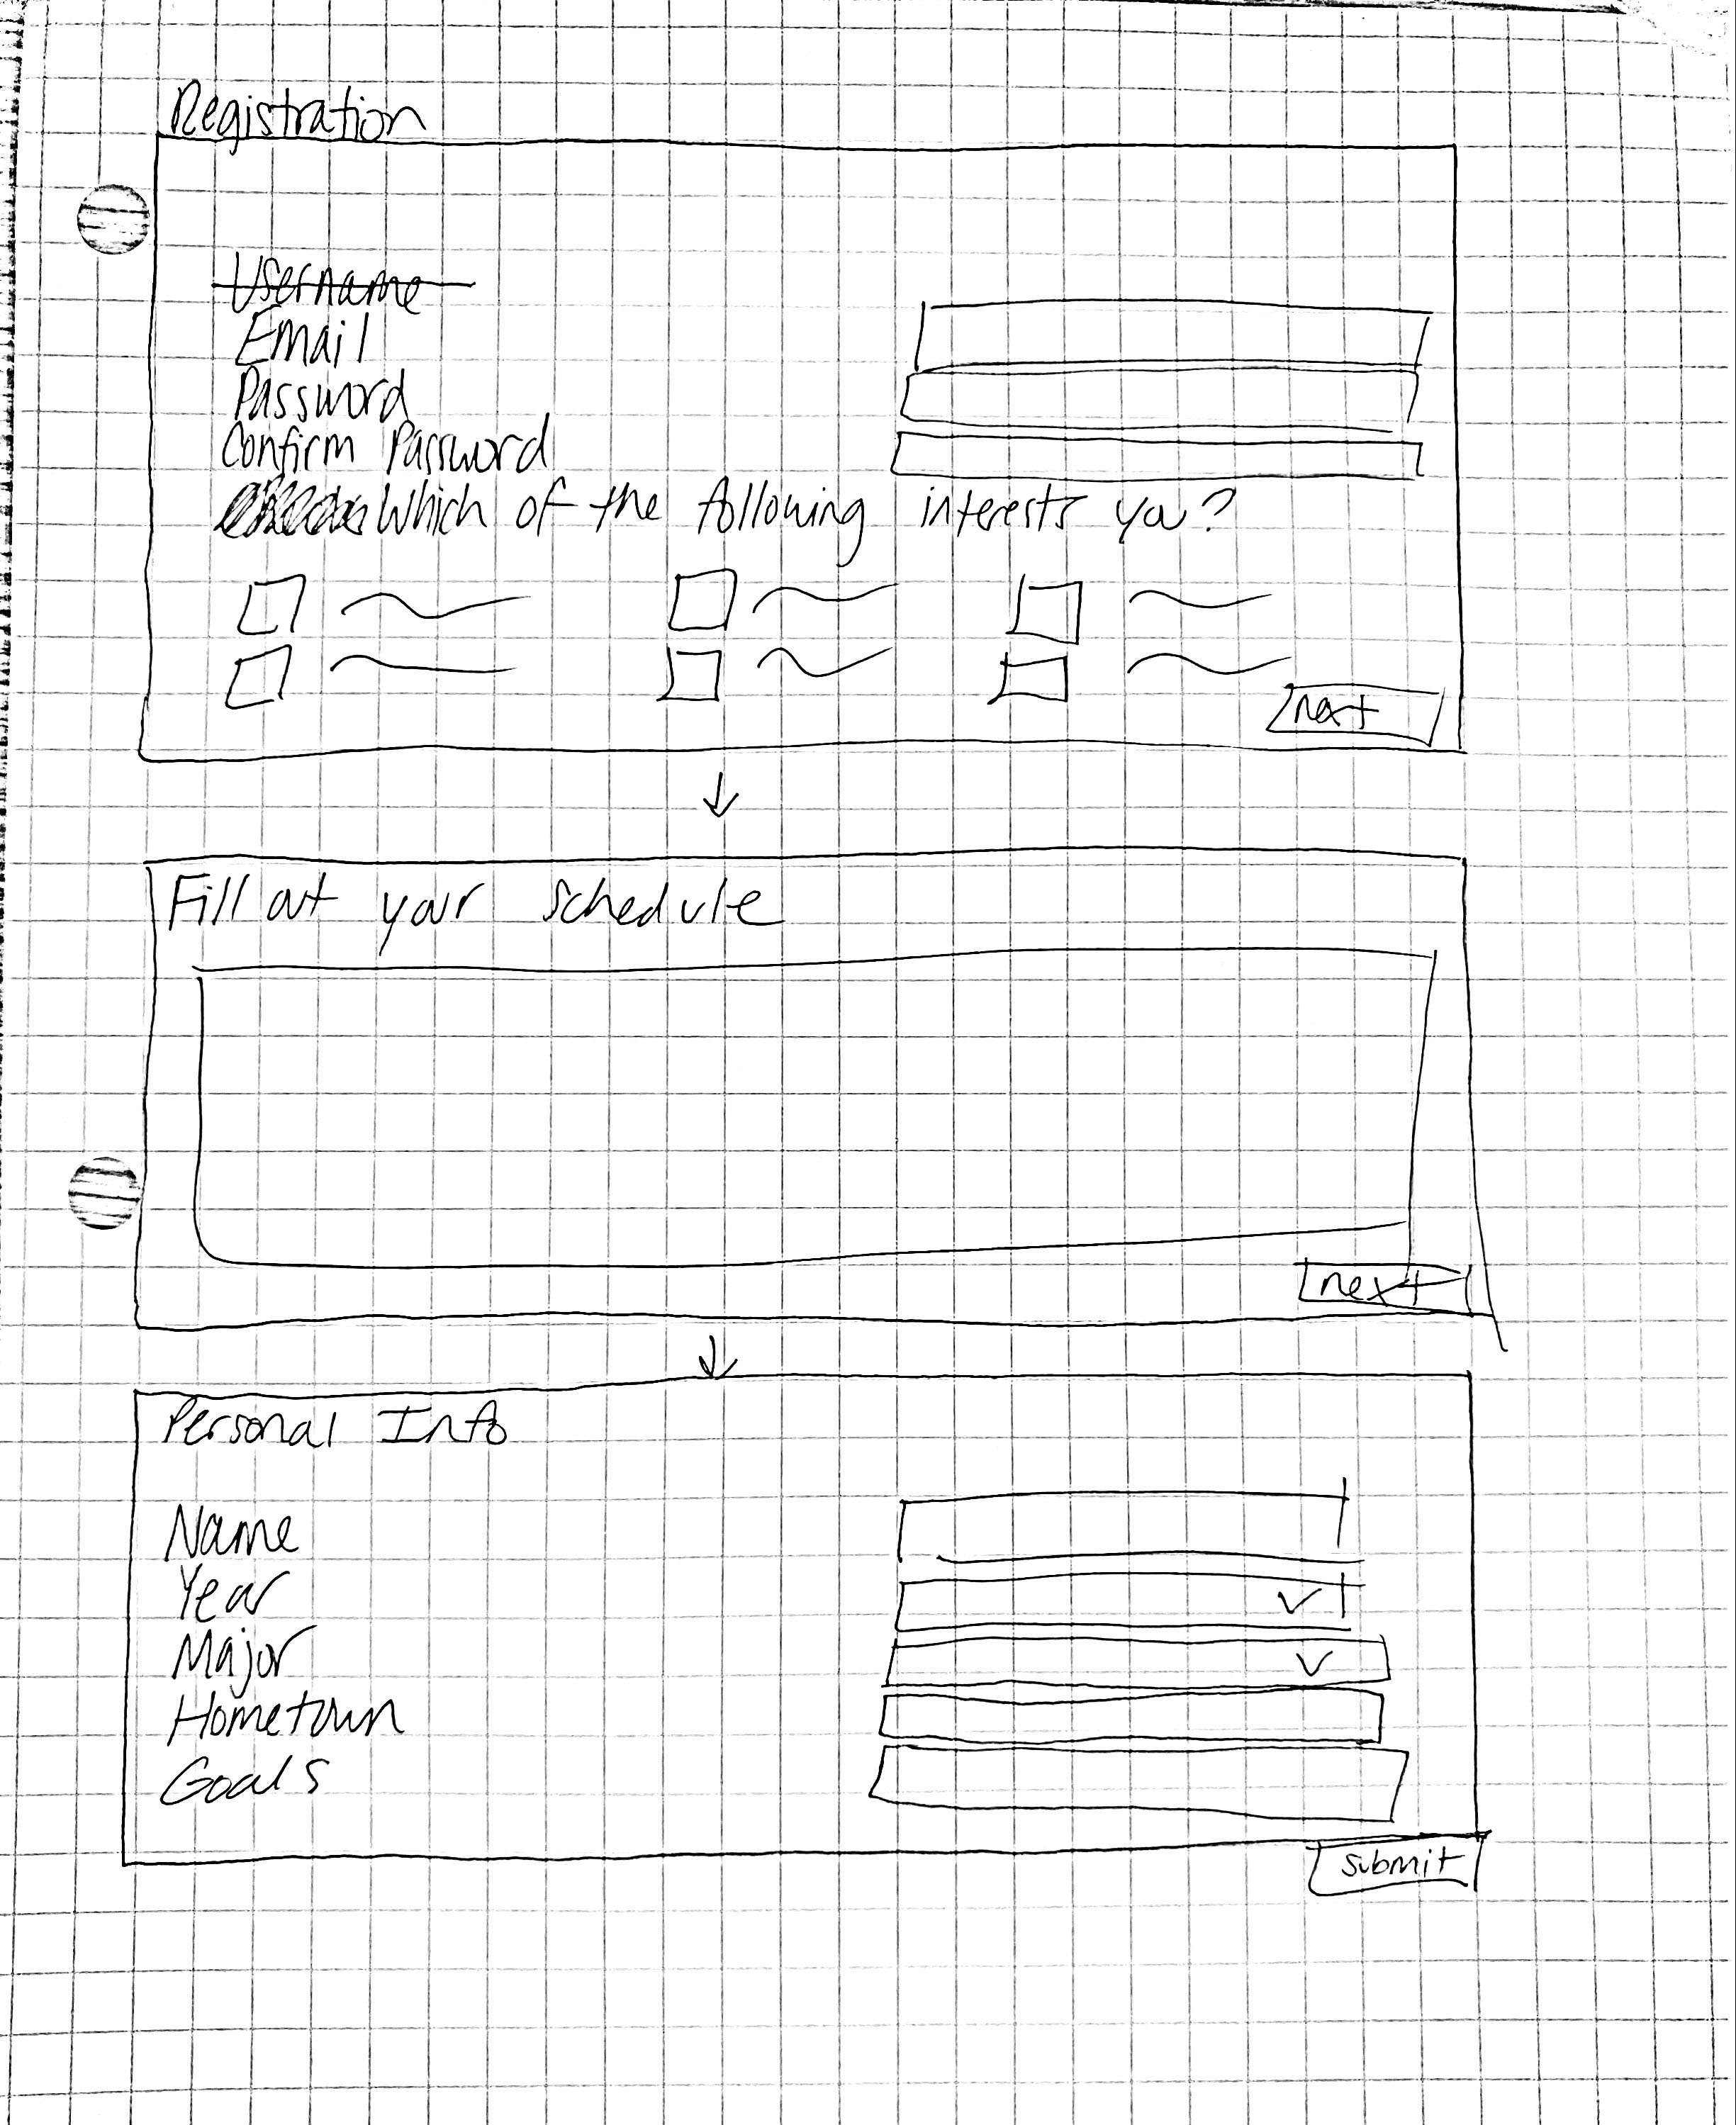 Registration
Username
Email
Password
Confirm Password
Which of the following interests you?
next
Fill out your schedule
next
Personal Info
Name
Year
Major
Hometown
Goals
submit